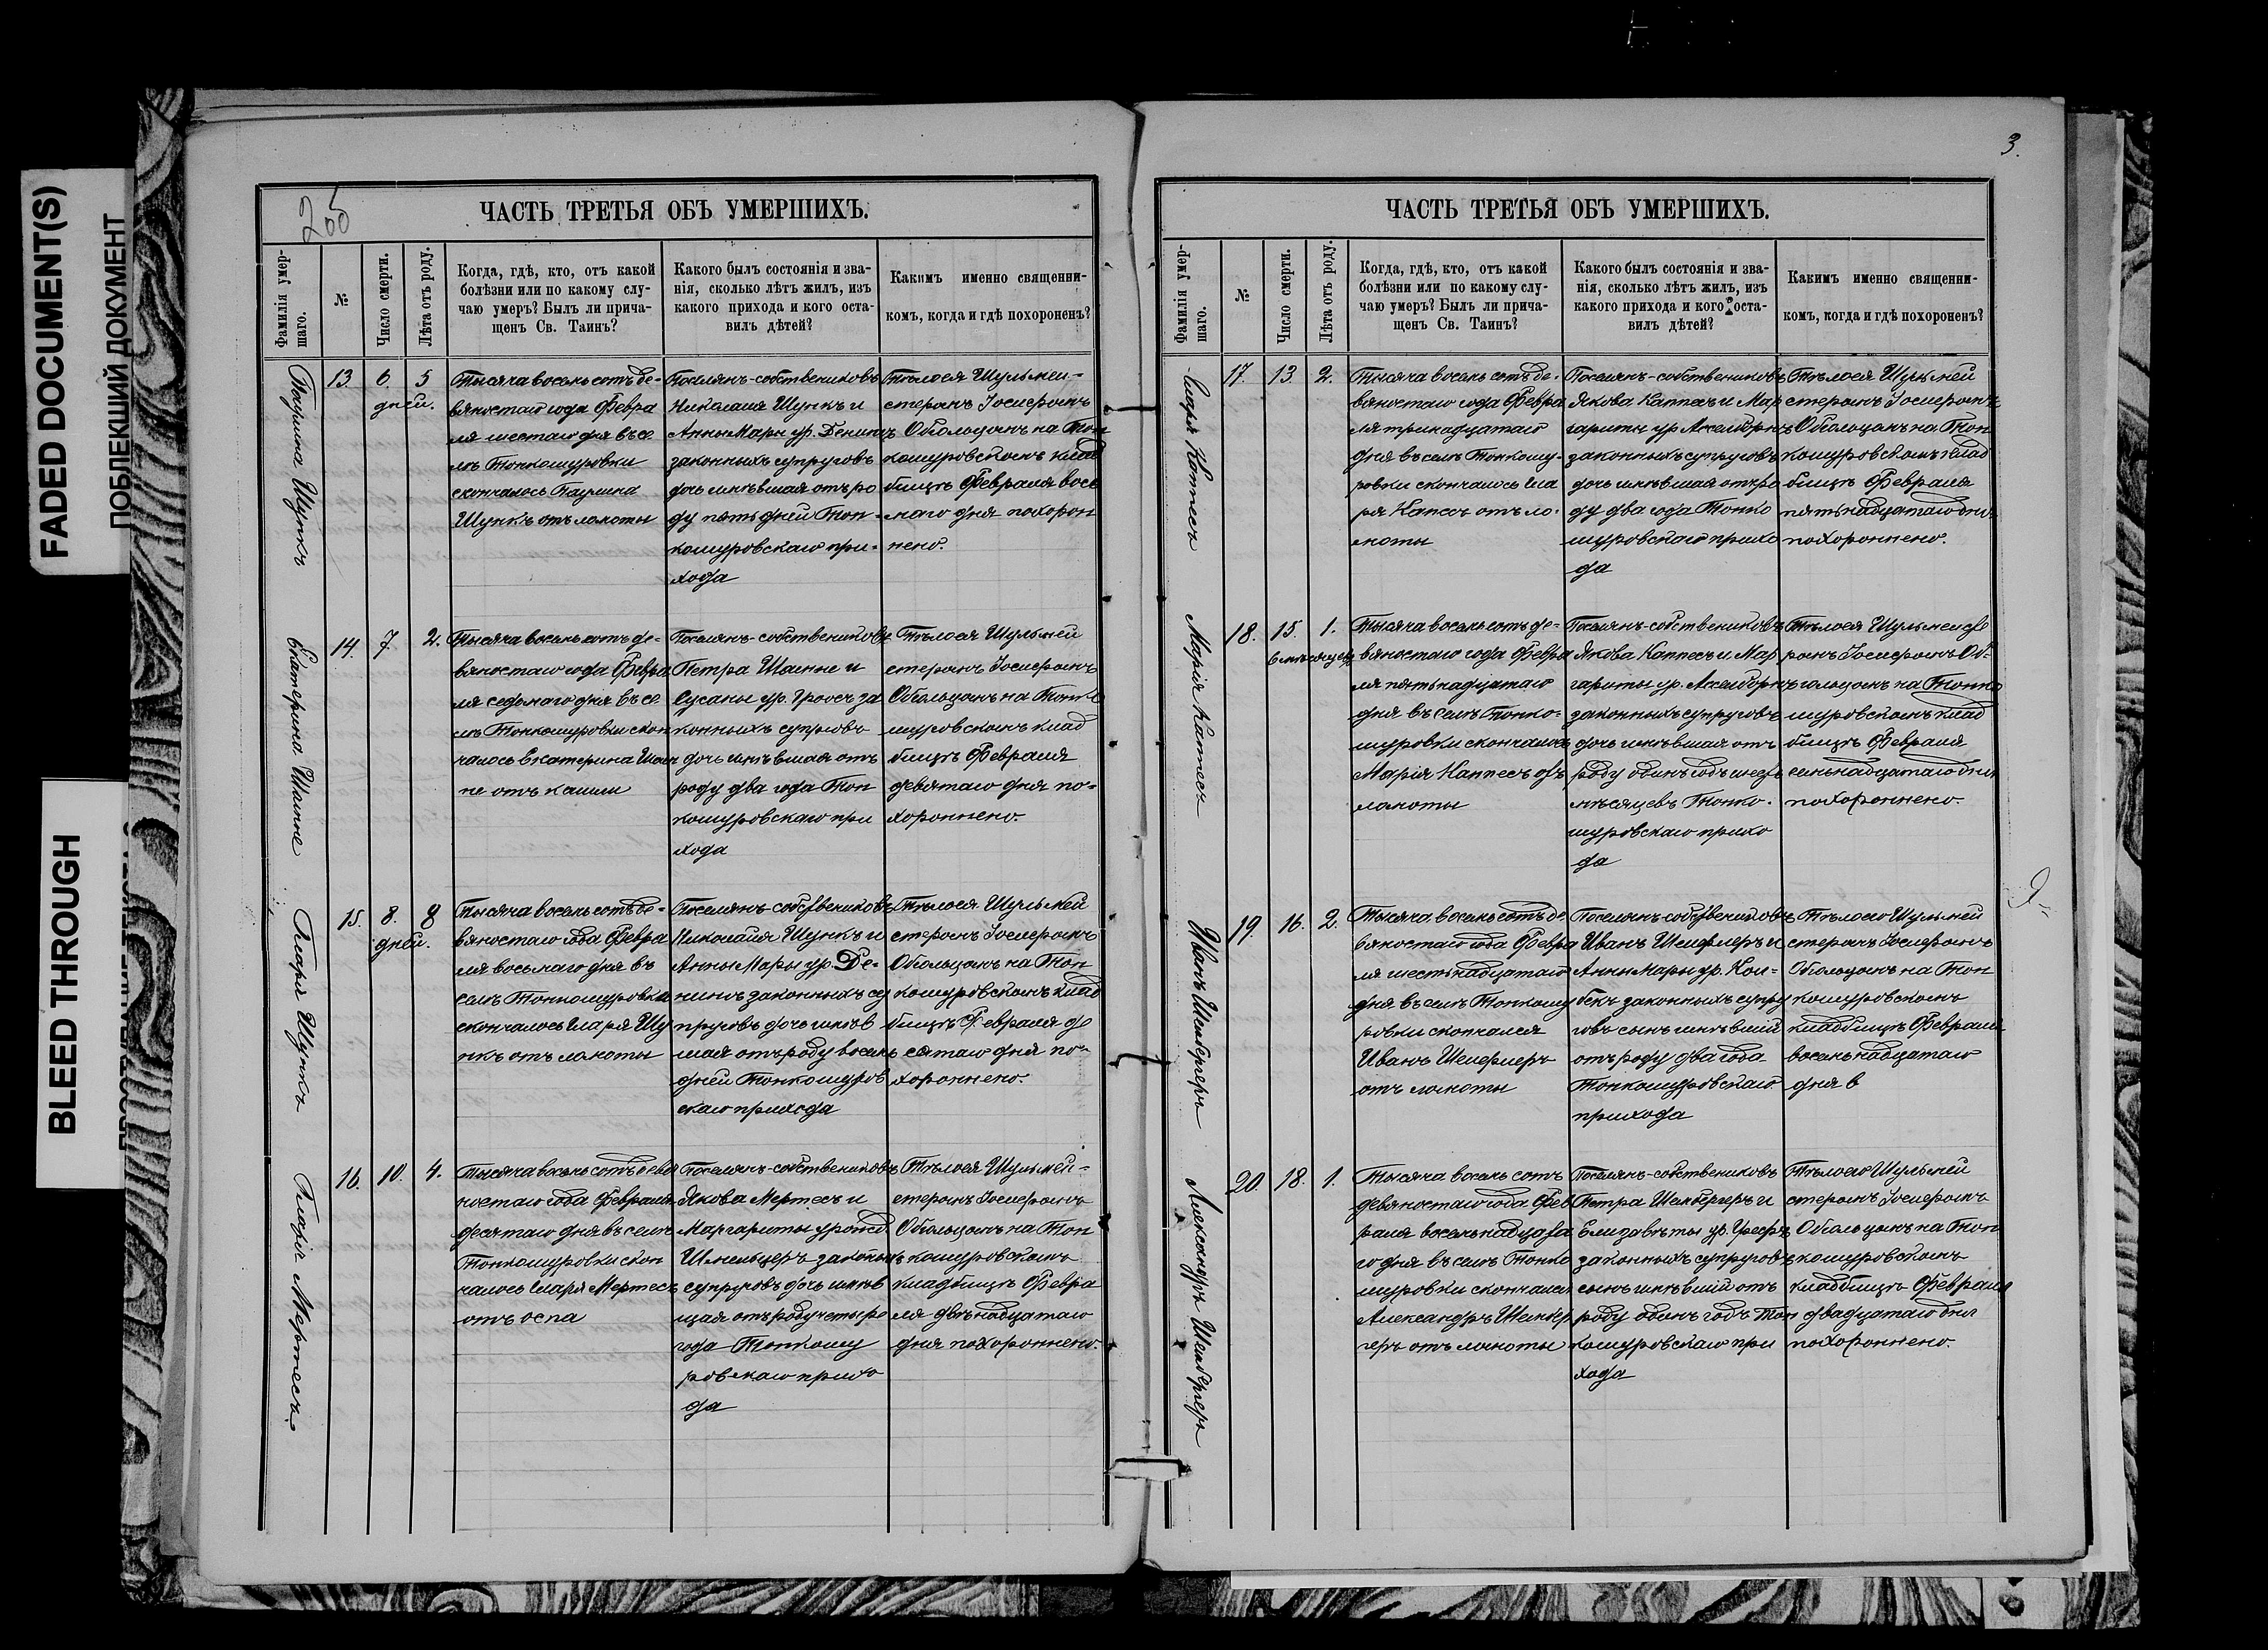 FADED DOCUMENT(S)
ПОБЛЕКШИЙ ДОКУМЕНТ
BLEED THROUGH
205
ЧАСТЬ ТРЕТЬЯ ОБЪ УМЕРШИХЪ.
Фамилія умер-
шаго.
№
Число смерти.
Лѣта отъ роду.
Когда, гдѣ, кто, отъ какой
болѣзни или по какому слу-
чаю умеръ? Былъ ли прича-
щенъ Св. Таинъ?
Какого былъ состоянія и зва-
нія, сколько лѣтъ жилъ, изъ
какого прихода и кого оста-
вилъ дѣтей?
Какимъ именно священни-
комъ, когда и гдѣ похороненъ?
Паулина Шункъ
13.
6.
5
дней.
Тысяча восемь сотъ де-
вяностаго года Февра
ля шестаго дня въ се
лѣ Тонкошуровки
скончалось Паулина
Шункъ отъ ломоты
Поселянъ-собствениковъ
Николая Шункъ и
Анны Мары ур. Денингъ
законныхъ супруговъ
дочь имѣвшая отъ ро
ду пять дней Тон-
кошуровскаго при-
хода
Тѣлоея Шульмеи-
стеромъ Іосифомъ
Обгольцомъ на Тон
кошуровскомъ клад
бищѣ Февраля вось
маго дня похорон
нено.
Екатерина Шаппе
14.
7.
2.
Тысяча восемь сотъ де-
вяностаго года Февра
ля седьмаго дня въ се
лѣ Тонкошуровки скон
чалось Екатерина Шап
пе отъ кашли
Поселянъ-собствениковъ
Петра Шаппе и
Сусаны ур. Гросъ за
конныхъ супруговъ
дочь имѣвшая отъ
роду два года Тон
кошуровскаго при
хода
Тѣлоея Шульмей
стеромъ Іосифомъ
Обгольцомъ на Тонко
шуровскомъ клад
бищѣ Февраля
девятаго дня по-
хороннено.
Кларя Шункъ
15.
8.
8
дней.
Тысяча восемь сотъ де-
вяностаго года Февра
ля восьмаго дня въ
селѣ Тонкошуровки
скончалось Кларя Шу
нкъ отъ ломоты
Поселянъ-собствениковъ
Николайя Шункъ и
Анны Мары ур. Де-
нингъ законныхъ су
пруговъ дочь имѣв
шая отъ роду восемь
дней Тонкошуров
скаго прихода
Тѣлоея Шульмей
стеромъ Іосифомъ
Обгольцомъ на Тон
кошуровскомъ клад
бищѣ Февраля де
сятаго дня по-
хороннено.
Кларія Мертесъ
16.
10.
4.
Тысяча восемь сотъ девя
ностаго года Февраля
десятаго дня въ селѣ
Тонкошуровки скон
чалось Кларя Мертесъ
отъ оспа
Поселянъ-собствениковъ
Якова Мертесъ и
Маргариты урожд.
Шмельцеръ законныхъ
супруговъ дочь имѣв
шая отъ роду четыре
года Тонкошу
ровскаго прихо
да
Тѣлоея Шульмей-
стеромъ Іосифомъ
Обгольцомъ на Тон
кошуровскомъ
кладбищѣ Февра
ля двѣнадцатаго
дня похороннено.
3.
ЧАСТЬ ТРЕТЬЯ ОБЪ УМЕРШИХЪ.
Фамилія умер-
шаго.
№
Число смерти.
Лѣта отъ роду.
Когда, гдѣ, кто, отъ какой
болѣзни или по какому слу-
чаю умеръ? Былъ ли прича-
щенъ Св. Таинъ?
Какого былъ состоянія и зва-
нія, сколько лѣтъ жилъ, изъ
какого прихода и кого оста-
вилъ дѣтей?
Какимъ именно священни-
комъ, когда и гдѣ похороненъ?
Кларя Каппесъ
17.
13.
2.
Тысяча восемь сотъ де-
вяностаго года Февра
ля тринадцатаго
дня въ селѣ Тонкошу-
ровки скончалось Кла
ря Капесъ отъ ло-
моты
Поселянъ-собствениковъ
Якова Каппесъ и Мар
гариты ур Ассельборнъ
законныхъ супруговъ
дочь имѣвшая отъ ро
ду два года Тонко
шуровскаго прихо
да
Тѣлоея Шульмей
стеромъ Іосифомъ
Обгольцомъ на Тон
кошуровскомъ клад
бищѣ Февраля
пятьнадцатаго дня
похороннено.
Марія Каппесъ
18.
15.
1.
6 мѣсяцевъ
Тысяча восемь сотъ де-
вяностаго года Февра
ля пятьнадцатаго
дня въ селѣ Тонко-
шуровки скончалось
Марія Каппесъ отъ
ломоты
Поселянъ-собствениковъ
Якова Каппесъ и Мар
гариты ур. Ассельборнъ
законныхъ супруговъ
дочь имѣвшая отъ
роду одинъ годъ шесть
мѣсяцевъ Тонко-
шуровскаго прихо
да
Тѣлоея Шульмейсте
ромъ Іосифомъ Об-
гольцомъ на Тонко
шуровскомъ клад
бищѣ Февраля
семьнадцатаго дня
похороннено.
Иванъ Шенбергеръ
19.
16.
2.
Тысяча восемь сотъ де
вяностаго года Февра
ля шестьнадцатаго
дня въ селѣ Тонкошу
ровки скончался
Иванъ Шеифлеръ
отъ ломоты
Поселянъ-собствениковъ
Иванъ Шеифлеръ и
Анны Мары ур. Кон-
бекъ законныхъ супру
говъ сынъ имѣвшій
отъ роду два года
Тонкошуровскаго
прихода
Тѣлоего Шульмей
стеромъ Іосифомъ
Обгольцомъ на Тон
кошуровскомъ
кладбищѣ Февраля
восемьнадцатаго
дня в
Александръ Шенбергеръ
20.
18.
1.
Тысяча восемь сотъ
девяностаго года Фев
раля восемьнадцата
го дня въ селѣ Тонко
шуровки скончался
Александръ Шенбер
геръ отъ ломоты
Поселянъ-собствениковъ
Петра Шенбергеръ и
Елизаветы ур. Грефъ
законныхъ супруговъ
сынъ имѣвшій отъ
роду одинъ годъ Тон
кошуровскаго при
хода
Тѣлоего Шульмей
стеромъ Іосифомъ
Обгольцомъ на Тон
кошуровскомъ
кладбищѣ Февраля
двадцатаго дня
похороннено.